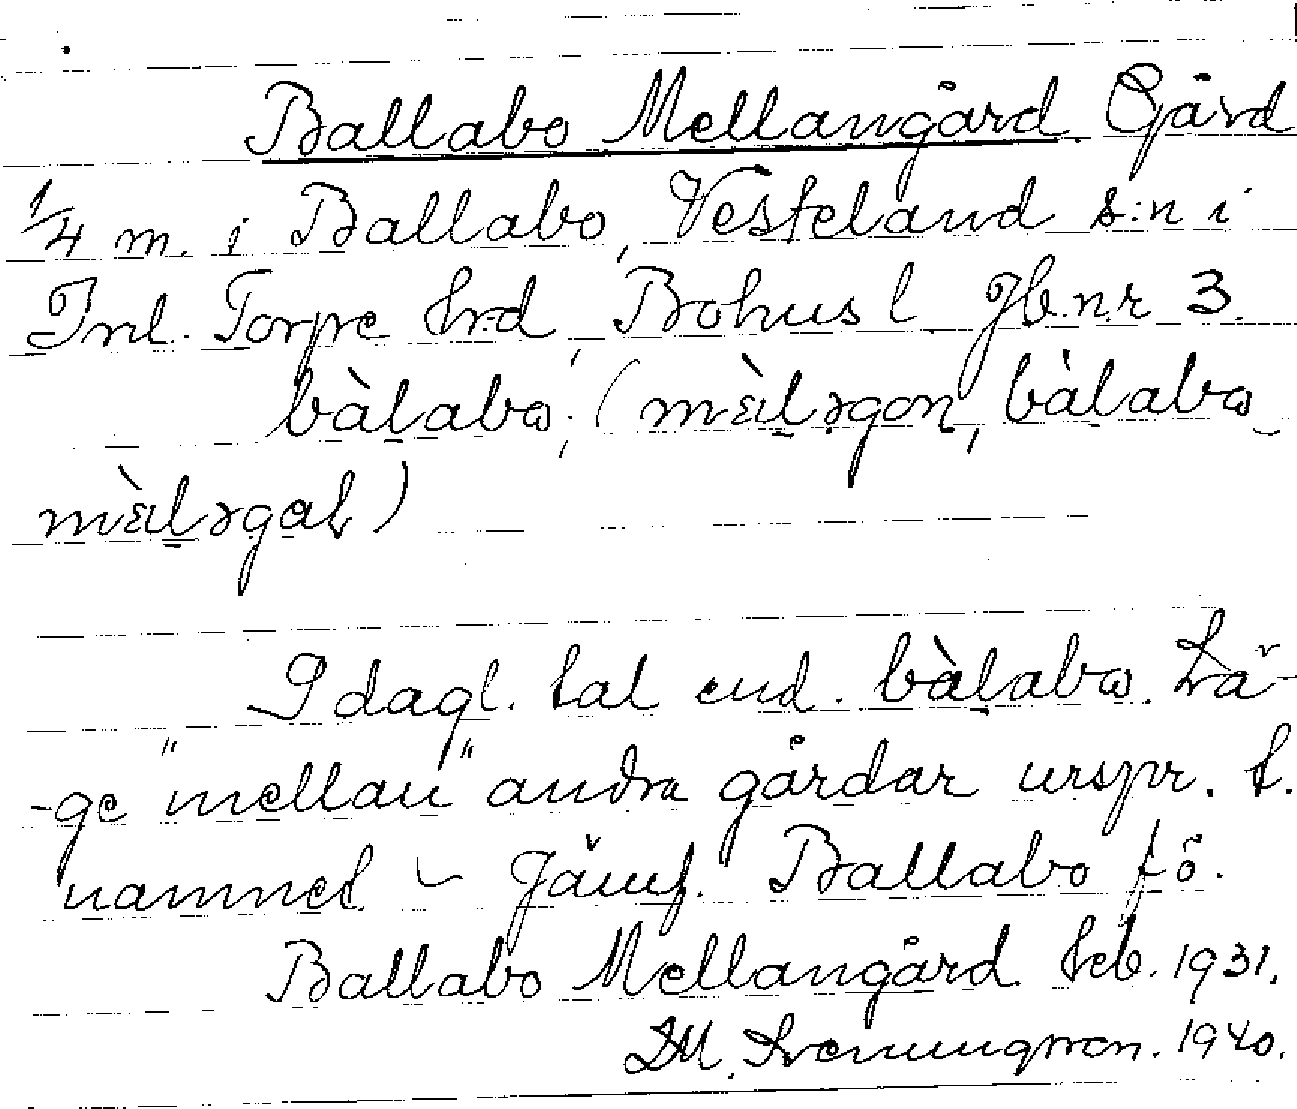 Ballabo Mellangård Gård
1/4 m. i Ballabo, Vesteland s:n i
Inl. Torpe hrd, Bohus l Jb.nr 3.
bàl̥abω; (mɛ̀l̥əgon, bàl̥abω
mɛ̀l̥əgaɽ)
I dagl. tal end. bàl̥abω. Lä-
-ge "mellan" andra gårdar urspr. t.
namnet - Jämf. Ballabo fö.
Ballabo Mellangård Jeb. 1931.
DM. Svenungsson. 1940.